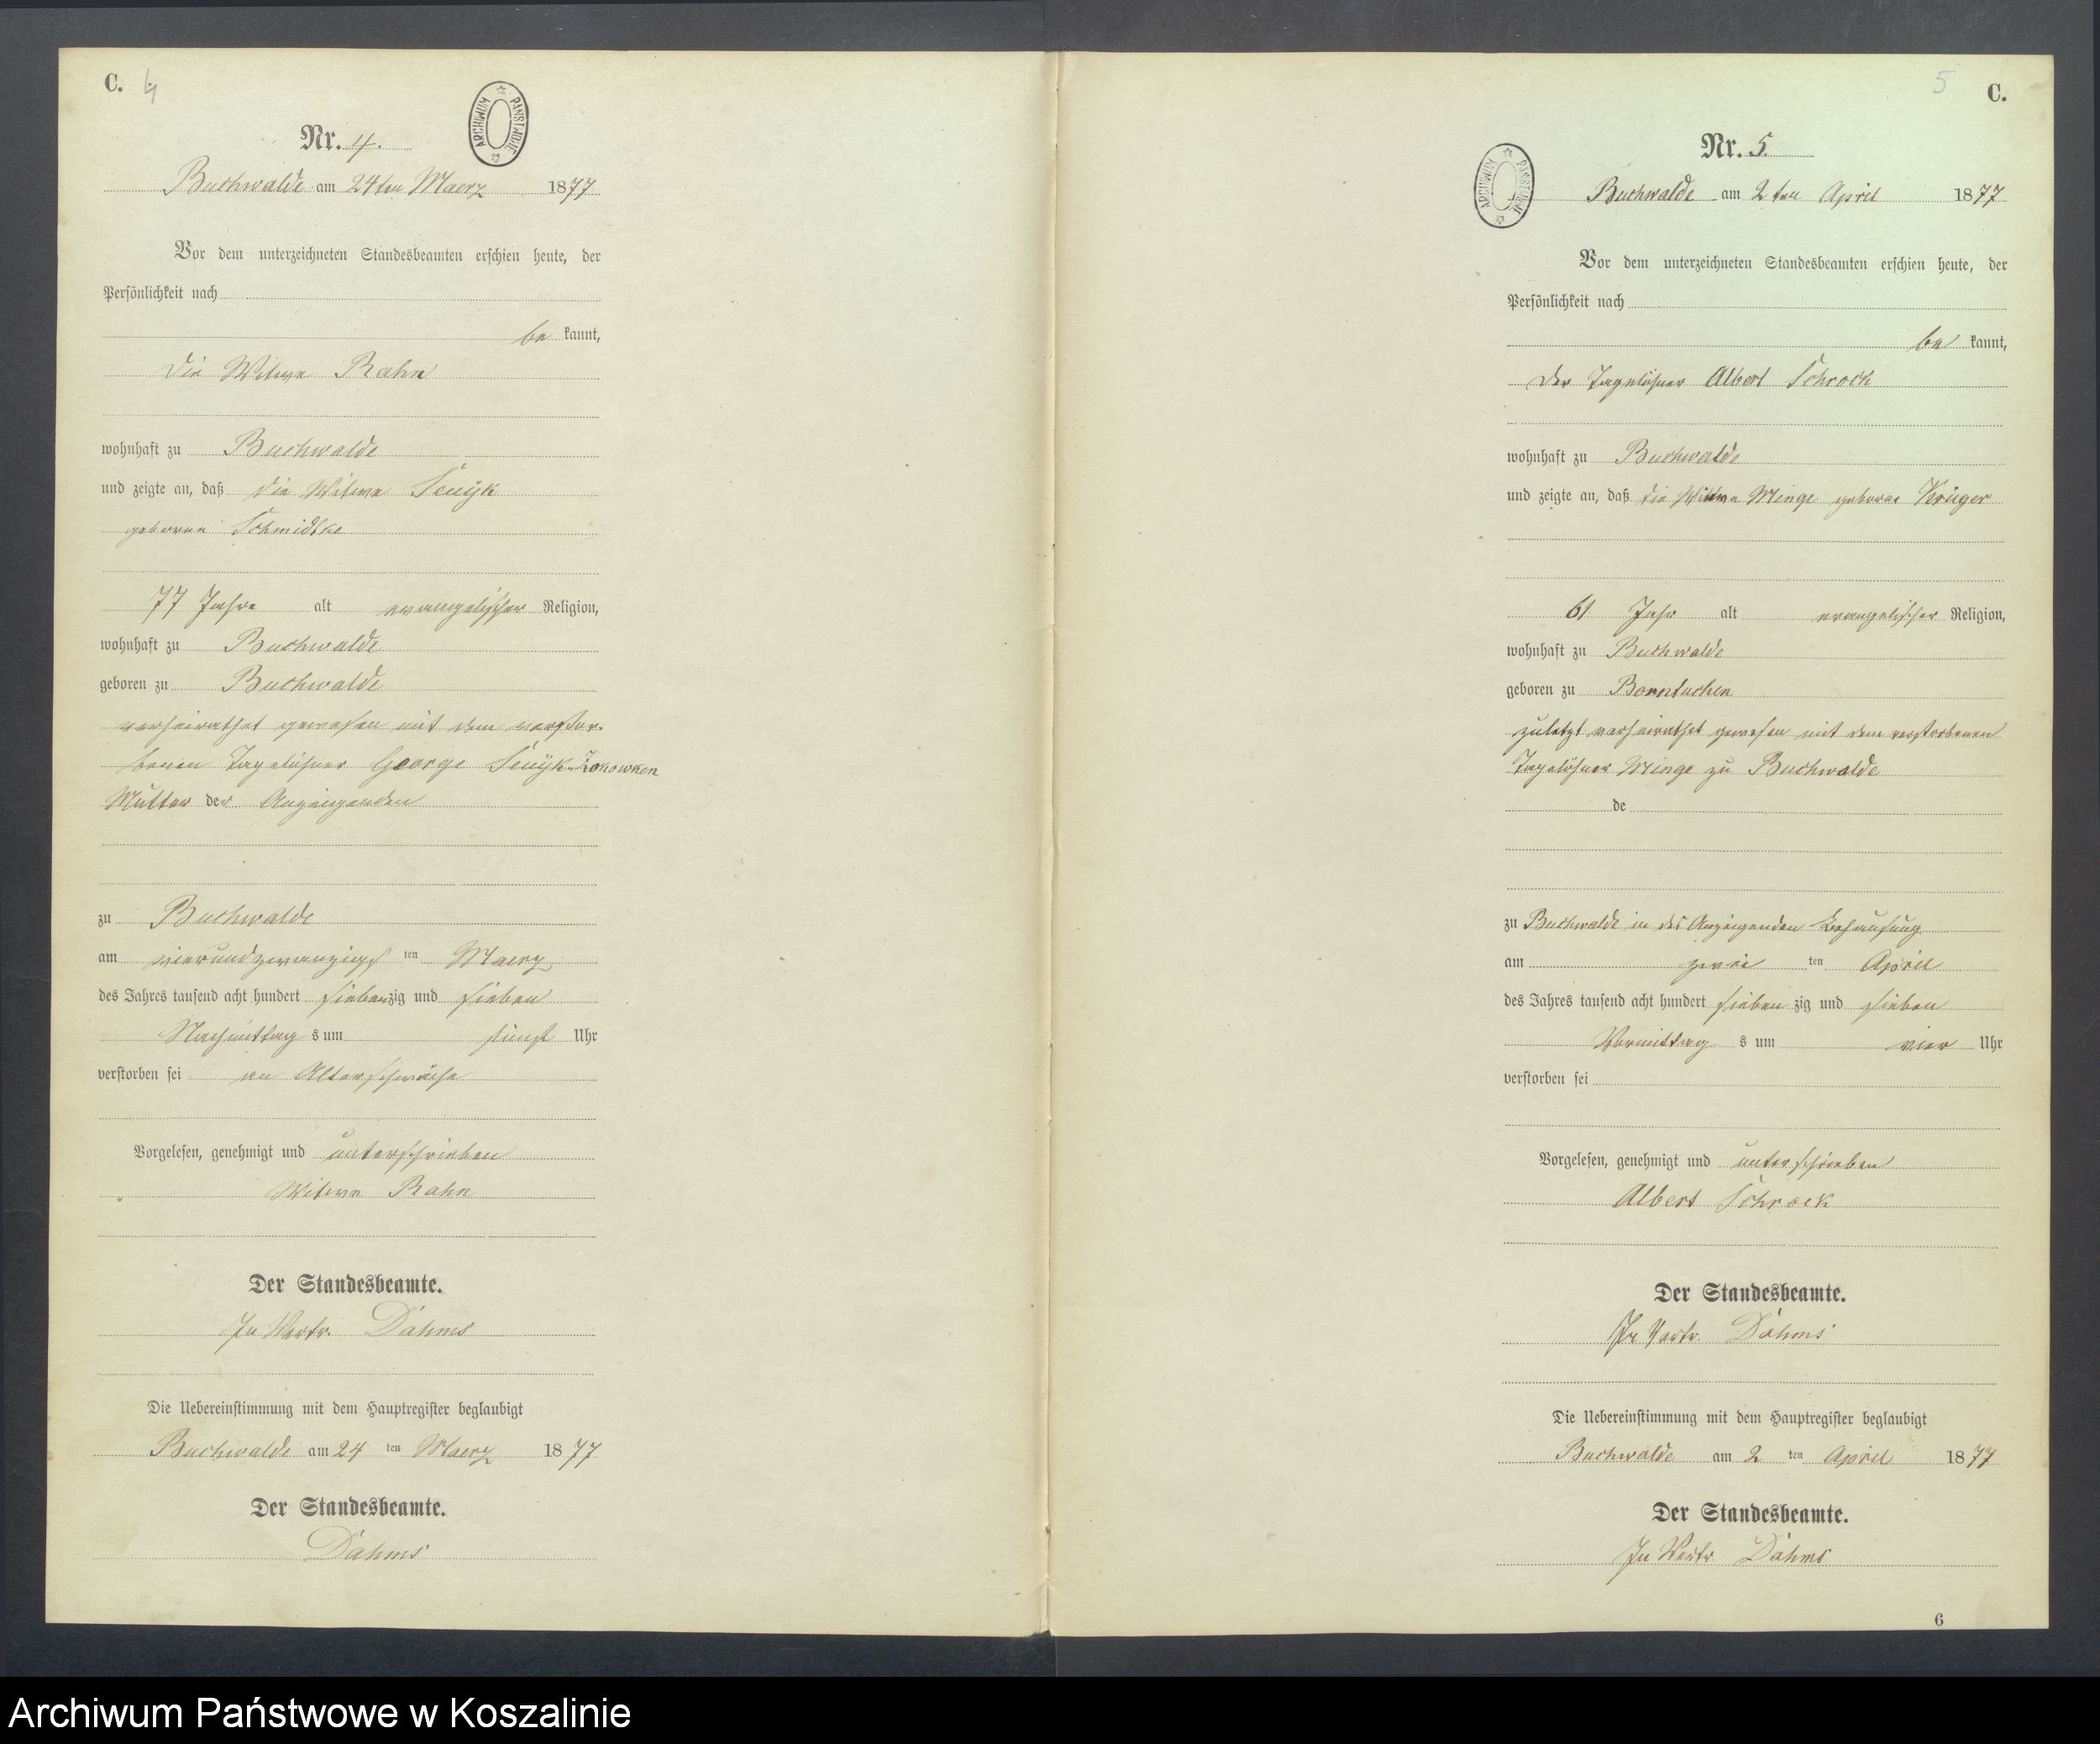 C. 4
ARCHIWUM PAŃSTWOWE
Nr. 4.
Buchwalde am 24ten Maerz 1877
Vor dem unterzeichneten Standesbeamten erschien heute, der
Persönlichkeit nach
be kannt,
die Witwe Rahn
wohnhaft zu Buchwalde
und zeigte an, daß die Witwe
geborene Schmidtke
77 Jahre alt evangelischer Religion,
wohnhaft zu Buchwalde
geboren zu Buchwalde
verheirathet gewesen mit dem verstor-
benen Tagelöhner George
Mutter der Anzeigenden
zu Buchwalde
am vierundzwanzigs ten Maerz
des Jahres tausend acht hundert siebenzig und sieben
Nachmittag s um fünf Uhr
verstorben sei an Altersschwäche
Vorgelesen, genehmigt und unterschrieben
Witwe Rahn
Der Standesbeamte.
In Vertr. Dahms
Die Uebereinstimmung mit dem Hauptregister beglaubigt
Buchwalde am 24 ten Maerz 1877
Der Standesbeamte.
Dahms
5 C.
ARCHIWUM PAŃSTWOWE
Nr. 5.
Buchwalde am 2ten April 1877
Vor dem unterzeichneten Standesbeamten erschien heute, der
Persönlichkeit nach
be kannt,
der Tagelöhner Albert Schrock
wohnhaft zu Buchwalde
und zeigte an, daß die Wittwe Minge geborene Krüger
61 Jahr alt evangelischer Religion,
wohnhaft zu Buchwalde
geboren zu Borntuchen
zuletzt verheirathet gewesen mit dem verstorbenen
Tagelöhner Minge zu Buchwalde
de
zu Buchwalde in des Anzeigenden Behausung
am zwei ten April
des Jahres tausend acht hundert sieben zig und sieben
Vormittag s um vier Uhr
verstorben sei
Vorgelesen, genehmigt und unterschrieben
Albert Schrock
Der Standesbeamte.
In Vertr. Dahms
Die Uebereinstimmung mit dem Hauptregister beglaubigt
Buchwalde am 2 ten April 1877
Der Standesbeamte.
In Vertr. Dahms
6
Archiwum Państwowe w Koszalinie